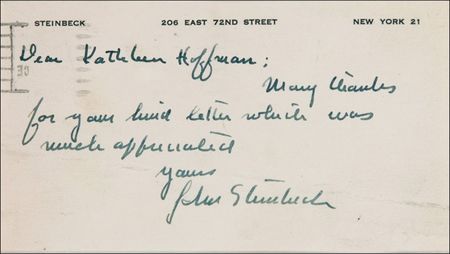 STEINBECK 206 EAST 72ND STREET NEW YORK 21
Dear Kathleen Hoffman:
Many thanks
for your kind letter which was
much appreciated
yours
John Steinbeck